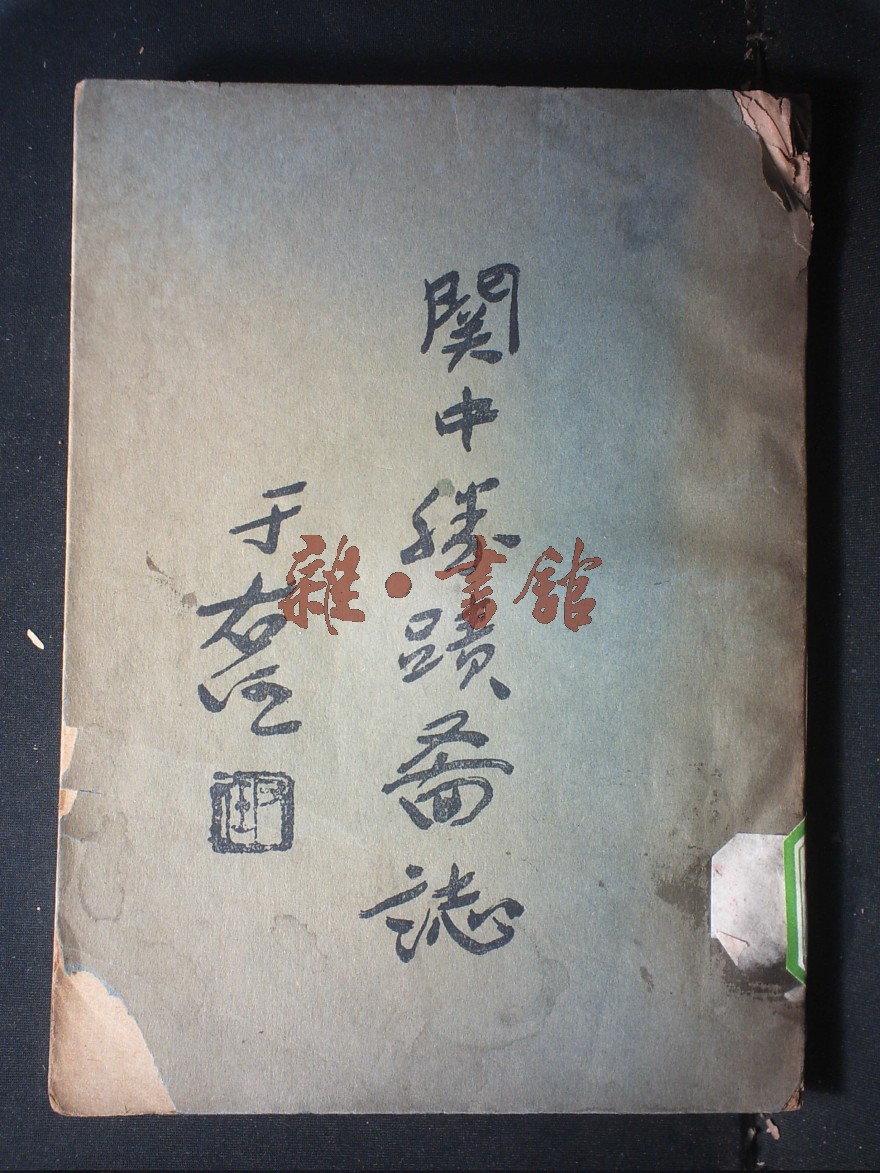 關中勝蹟啚誌
于右任
雜·書館